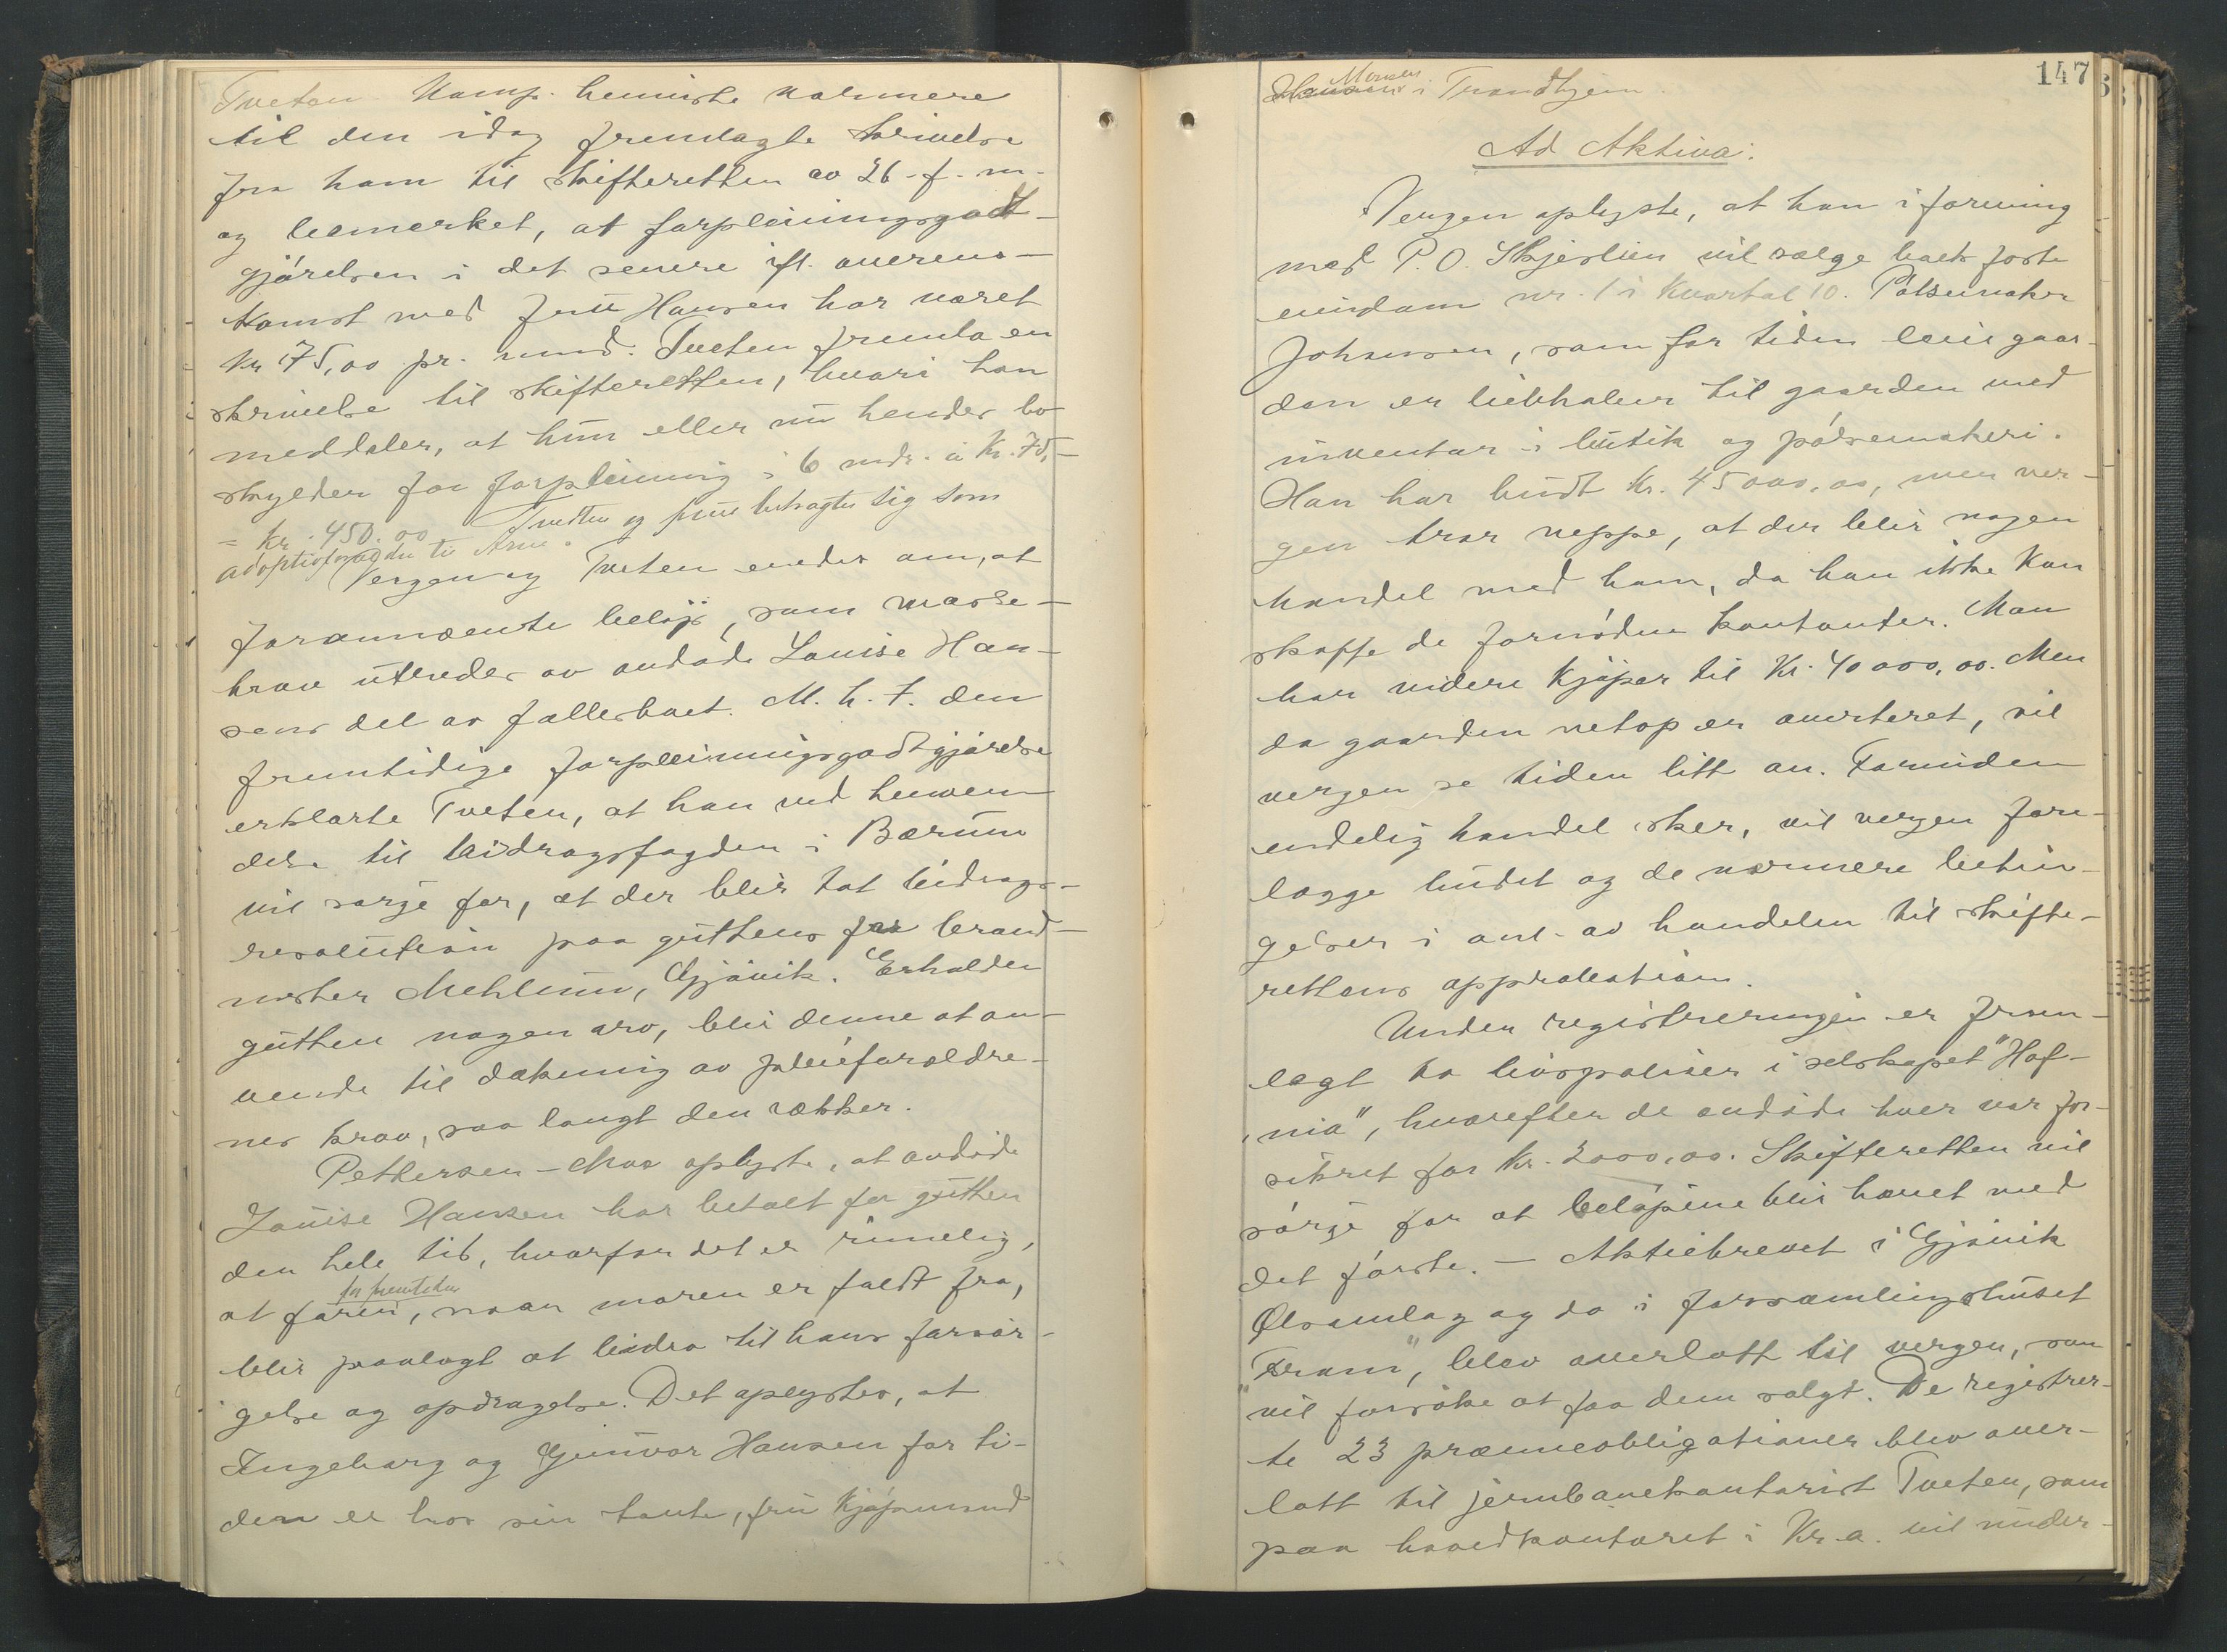 Tveten. Komp. henviste nærmere
til den idag fremlagte skrivelse
fra ham til skifteretten av 26. f. m.
og bemerket, at forpleiningsgodt-
gjørelsen i det senere ifl. overens-
komst med fru Hansen har været
kr 75,00 pr. mnd. Tveten fremla en
skrivelse til skifteretten, hvori han
meddeler, at hun eller nu hendes bo
skylder for forpleining i 6 mdr. a kr. 75,-
= kr. 450.00 Tveten og frue betragter sig som
adoptivforældre til Arne.
Vergen og Tveten enedes om, at
forannævnte beløp, som masse-
krav utredes av avdøde Louise Han-
sens del av fællesboet. M. h. t. den
fremtidige forpleiningsgodtgjørelse
erklærte Tveten, at han ved henven-
delse til bidragsfogden i Bærum
vil sørge for, at der blir tat bidrags-
resolution paa guttens far brand-
mester Mehlum, Gjøvik. Erholder
gutten nogen arv, blir denne at an-
vende til dækning av pleieforældre-
nes krav, saa langt den rækker.
Pettersen-Moe oplyste, at avdøde
Louise Hansen har betalt for gutten
den hele tid, hvorfor det er rimelig,
for fremtiden
at faren, naar moren er faldt fra,
blir paalagt at bidra til hans forsør-
gelse og opdragelse. Det oplystes, at
Ingeborg og Gunvor Hansen for ti-
den er hos sin tante, fru Kjøpmand
147
Hansen i Trondhjem.
Ad Aktiva:
Vergen oplyste, at han i forening
med P. O. Skjerlien vil sælge boets faste
eiendom nr. 1 i Kvartal 10. Pølsemaker
Johnsen, som for tiden leier gaar-
den er liebhaber til gaarden med
inventar i butik og pølsemakeri.
Han har budt kr. 45 000,00, men ver-
gen tror neppe, at der blir nogen
handel med ham, da han ikke kan
skaffe de fornødne kontanter. Man
har videre kjøper til kr. 40 000,00. Men
da gaarden netop er avertert, vil
vergen se tiden litt an. Forinden
endelig handel sker, vil vergen fore-
lægge budet og de nærmere betin-
gelser i anl. av handelen til skifte-
rettens approbation.
Under registreringen er frem-
lagt to livspoliser i selskapet "Haf-
nia", hvorefter de avdøde hver var for-
sikret for kr. 2000,00. Skifteretten vil
sørge for at beløpene blir hævet med
det første. - Aktiebrevet i Gjøvik
Ølsamlag og to i forsamlingshuset
"Fram", blev overlatt til vergen, som
vil forsøke at faa dem solgt. De registrer-
te 23 præmieobligationer blev over-
latt til jernbanekontorist Tveten, som
paa hovedkontoret i Kr.a. vil under-